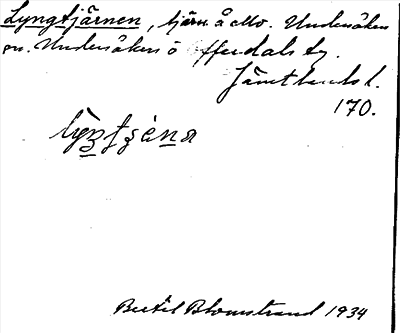 Lyngtjärnen, tjärn å allo. Undersåkers
sn. Undersåkers o Offerdals tg.
Jämtlands l.
170.
Bertil Blomstrand 1934